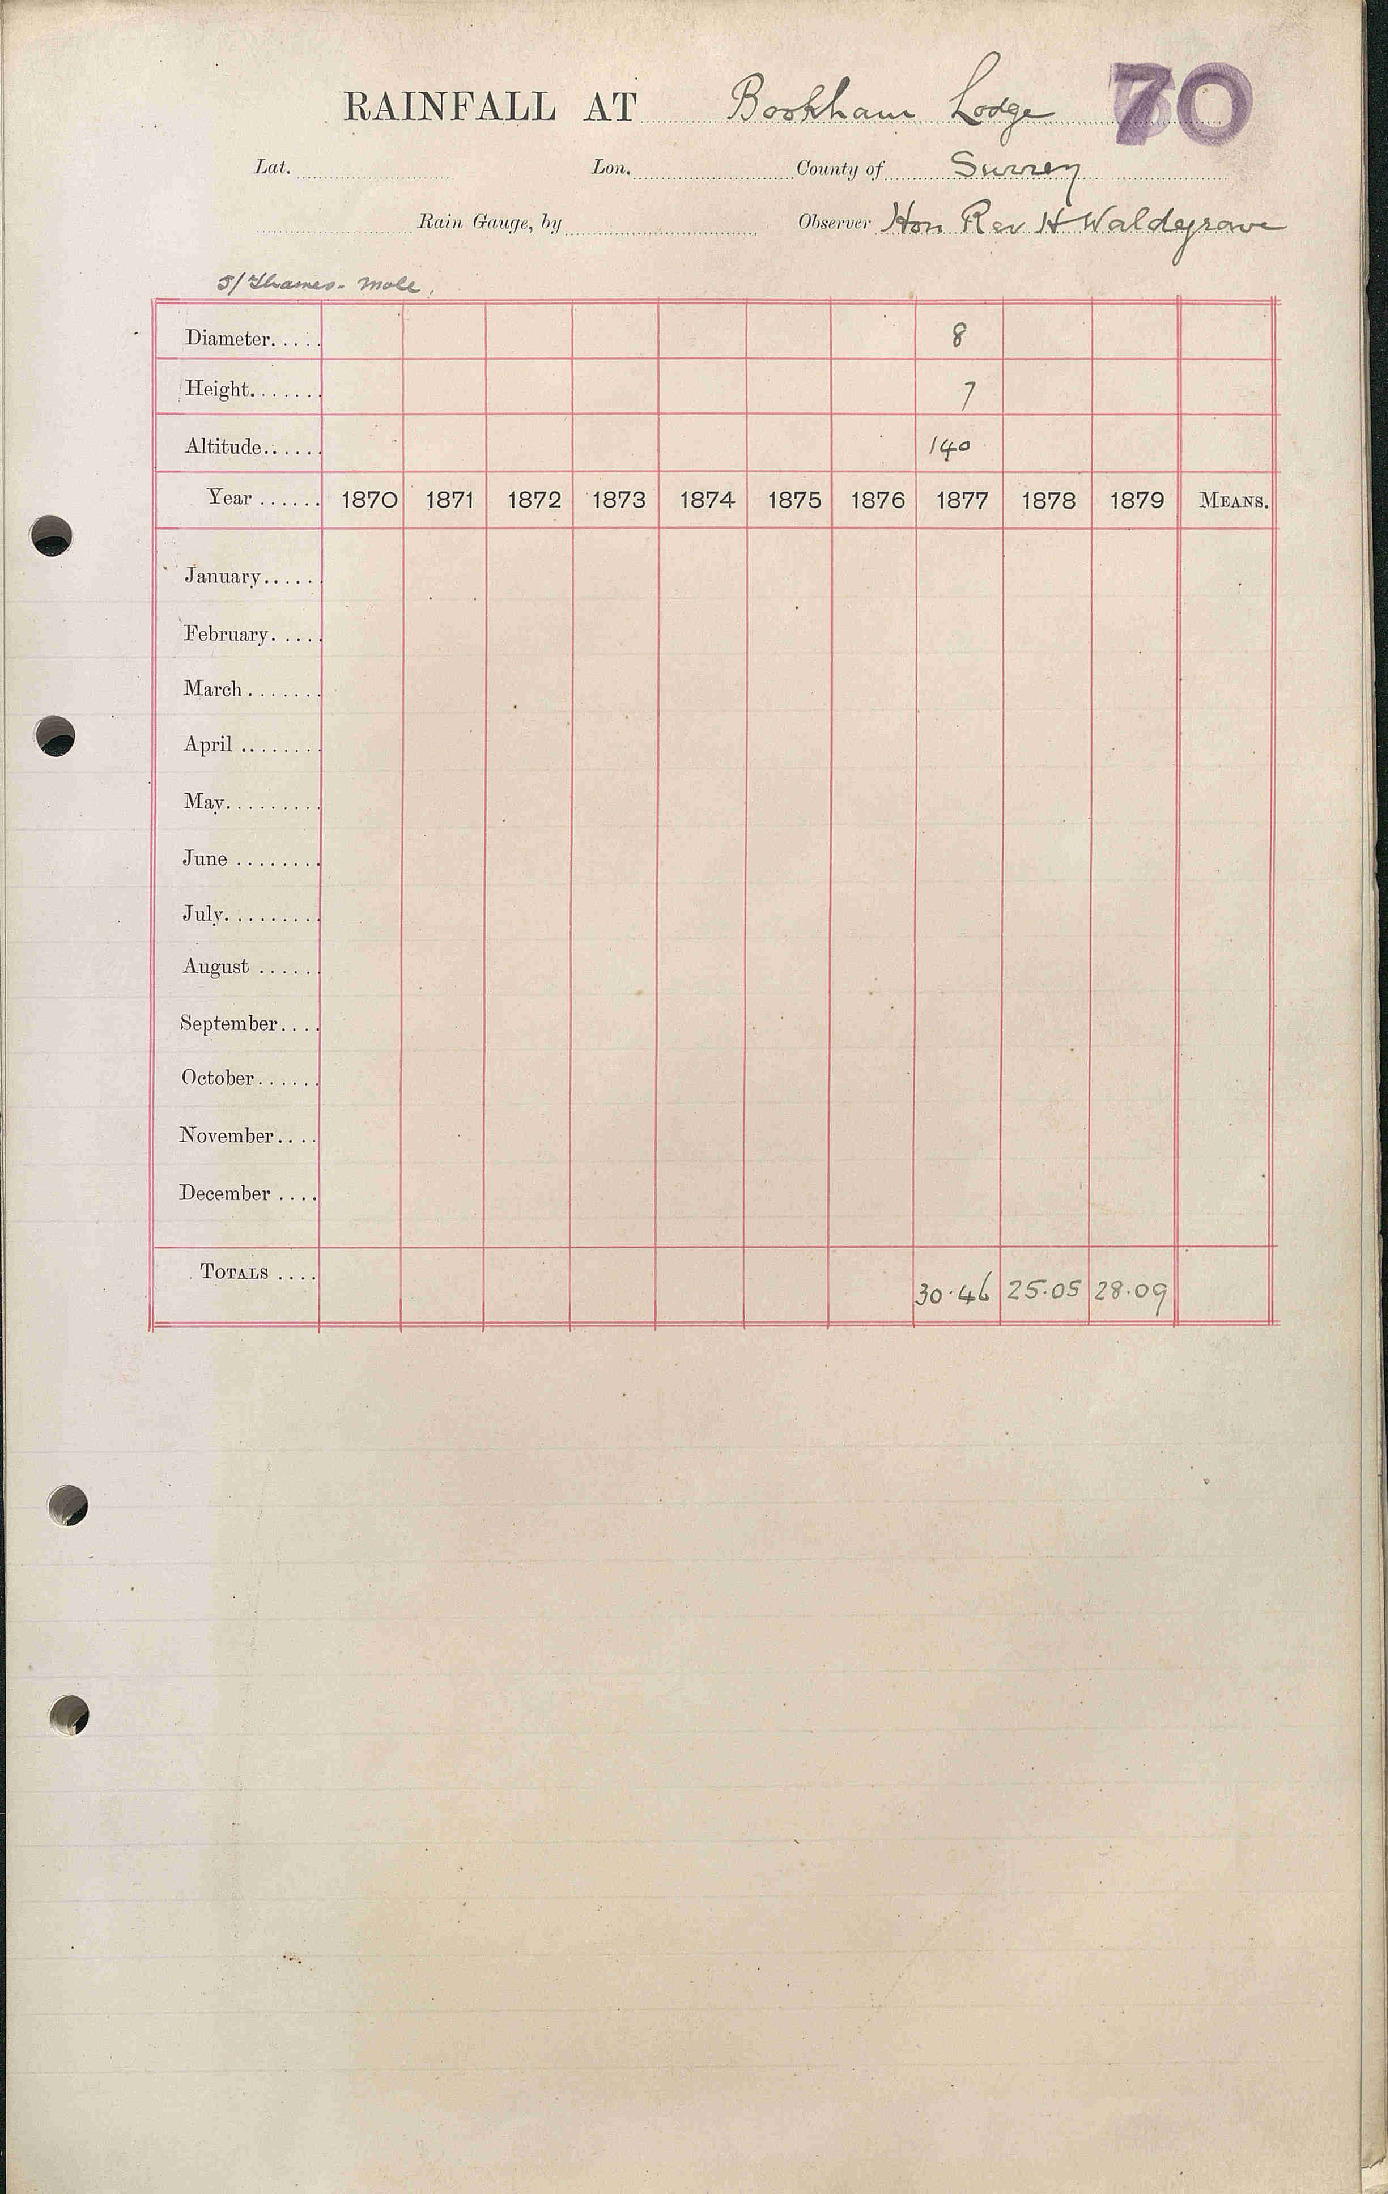 RAINFALL AT Bookham Lodge 70
Lat. Lon. County of Surrey
Rain Gauge, by Observer Hon Rev H Waldegrave
5/Thames - Mole.
Diameter..... 8
Height....... 7
Altitude...... 140
Year ...... 1870 1871 1872 1873 1874 1875 1876 1877 1878 1879 MEANS.
January.....
February.....
March .......
April ........
May.........
June ........
July.........
August ......
September....
October......
November....
December ....
TOTALS .... 30.46 25.05 28.09